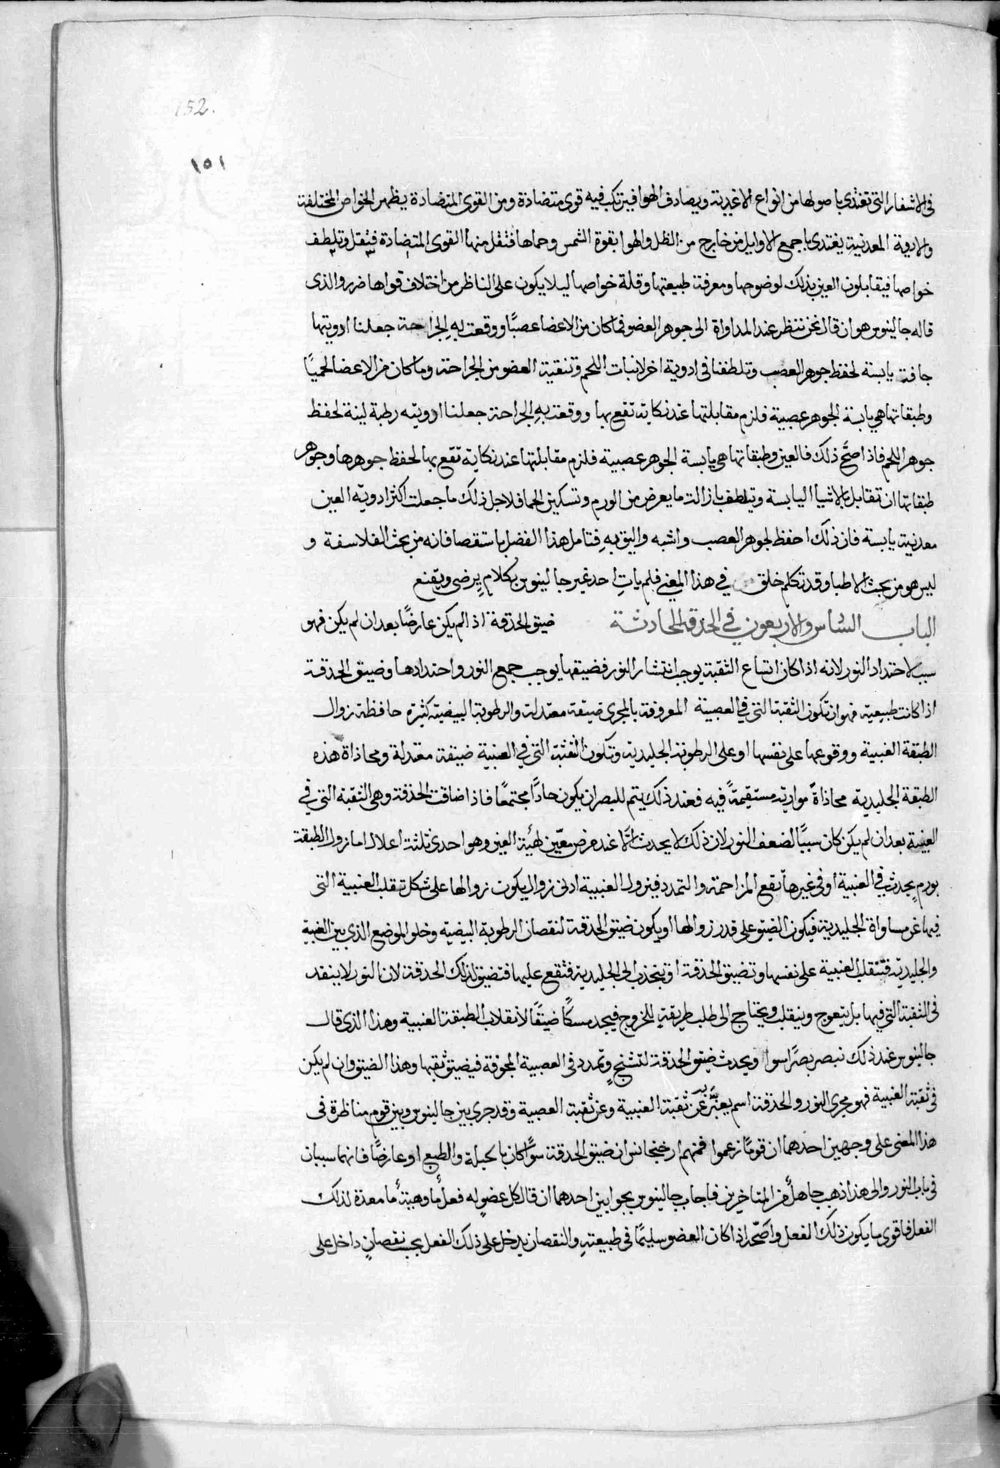 152.
١٥١
في الاشفار التي تغتذي باصولها من انواع الاغدية ويصادف الهوا فيتركب فيه قوى متضادة ومن القوى المتضادة يظهر الخواص المختلفة
والادوية المعدنية يغتدي باجميع الاوايل من خارج من الظل والهوا بقوة الشمس وحماها فتقل منها القوى المتضادة فيثقل وتلطف
خواصها فيقابلون العين بذلك لوضوحها ومعرفة طبيعتها وقلة خواصها ليلا يكون على الناظر من اختلاف قواها ضرر والذى
قاله جالينوس هو ان قال نحن ننظر عند المداواة الى جوهر العضو فما كان من الاعضا عصبًا ووقعت به الجراحة جعلنا ادويتها
جافة يابسة لحفظ جوهر العصب وتلطفنا في ادوية اخر لانبات اللحم وتنقية العضو من الجراحة وما كان من الاعضا لحميًا
وطبقاتها هي يابسة الجوهر عصبية فلزم مقابلتها عند نكاية تقع بها ووقعت به الجراحة جعلنا ادويته رطبة لينة لحفظ
جوهر اللحم فاذا صح ذلك فالعين وطبقاتها هي يابسة الجوهر عصبية فلزم مقابلتها عند نكاية تقع بها لحفظ جوهرها وجوهر
طبقاتها ان تقابل بالاشيا اليابسة ويتلطف بازالة ما يعرض من الورم وتسكين الحما فلاجل ذلك ما جعلت اكثر ادوية العين
معدنية يابسة فان ذلك احفظ لجوهر العصب واشبه واليق به فتامل هذا الفصل باستقصا فانه من بحث الفلاسفة و
ليس هو من بحث الاطبا وقد تكلم خلق في هذا المعنى فلم يات احد غير جالينوس بكلام يرضى ويقنع
الباب السادس والاربعون في الحدقة الحادثة ضيق الحدقة اذا لم يكن عارضًا بعد ان لم يكن فهو
سبب لاحتداد النور لانه اذا كان اتساع الثقبة يوجب انتشار النور فضيقها يوجب جمع النور واحتدادها وضيق الحدقة
اذا كانت طبيعية فهو ان تكون الثقبة التي في العصبة المعروفة بالمجرى ضيقة معتدلة والرطوبة البيضية كثيرة حافظة زوال
الطبقة العنبية ووقوعها على نفسها او على الرطوبة الجليدية وتكون الثقبة التي في العنبية ضيقة معتدلة ومحاذاة هذه
الطبقة الجليدية محاذاة موازية مستقيمة فيه فعند ذلك يتم للبصر ان يكون حادًا مجتمعًا فاذا ضاقت الحدقة وهي الثقبة التي في
العنبية بعد ان لم يكن كان سببًا لضعف النور لان ذلك لا يحدث انما عند مرض معين لهيئة العين وهو احدى ثلثة اعلال اما زوال الطبقة
بورم يحدث في العنبية او في غيرها تقع المزاحمة والتمدد فيزول العنبية ادنى زوال يكون زوالها على شكل تنقلب العنبية التي
فيها عن مساواة الجليدية فيكون الضيق على قدر زوالها او يكون ضيق الحدقة لنقصان الرطوبة البيضية وخلو الموضع الذي بين العنبية
والجليدية فتنقلب العنبية على نفسها وتضيق الحدقة او تنجذب الى الجليدية فتقع عليها فتضيق لذلك الحدقة لان النور لا ينفد
في الثقبة التي فيها بل يتعوج وينقلب ويحتاج الى طلب طريقة للخروج فيجد مسلكًا ضيقًا لانقلاب الطبقة العنبية وهذا الذي قال
جالينوس عند ذلك نبصر بصرًا سوا ويحدث ضيق الحدقة لتشنج وتمدد في العصبة المجوفة فيضيق ثقبها وهذا الضيق وان لم يكن
في ثقبة العنبية فهو مجرى النور والحدقة اسم يعبّر به عن ثقبة العنبية وعن ثقبة العصبة وقد جرى بين جالينوس وبين قوم مناظرة في
هذا المعنى على وجهين احدهما ان قومًا زعموا فمنهم ارخنجانس ان ضيق الحدقة سوًا كان بالجبلة والطبع او عارضًا فانهما سببان
في باب النور والى هذا ذهب جاهل من المتاخرين فاجاب جالينوس بجوابين احدهما ان قال كل عضو له فعل ما وهيئة ما معدة لذلك
الفعل فاقوى ما يكون ذلك الفعل واصحّه اذا كان العضو سليمًا في طبيعته والنقصان يدخل على ذلك الفعل بحسب نقصان داخل على